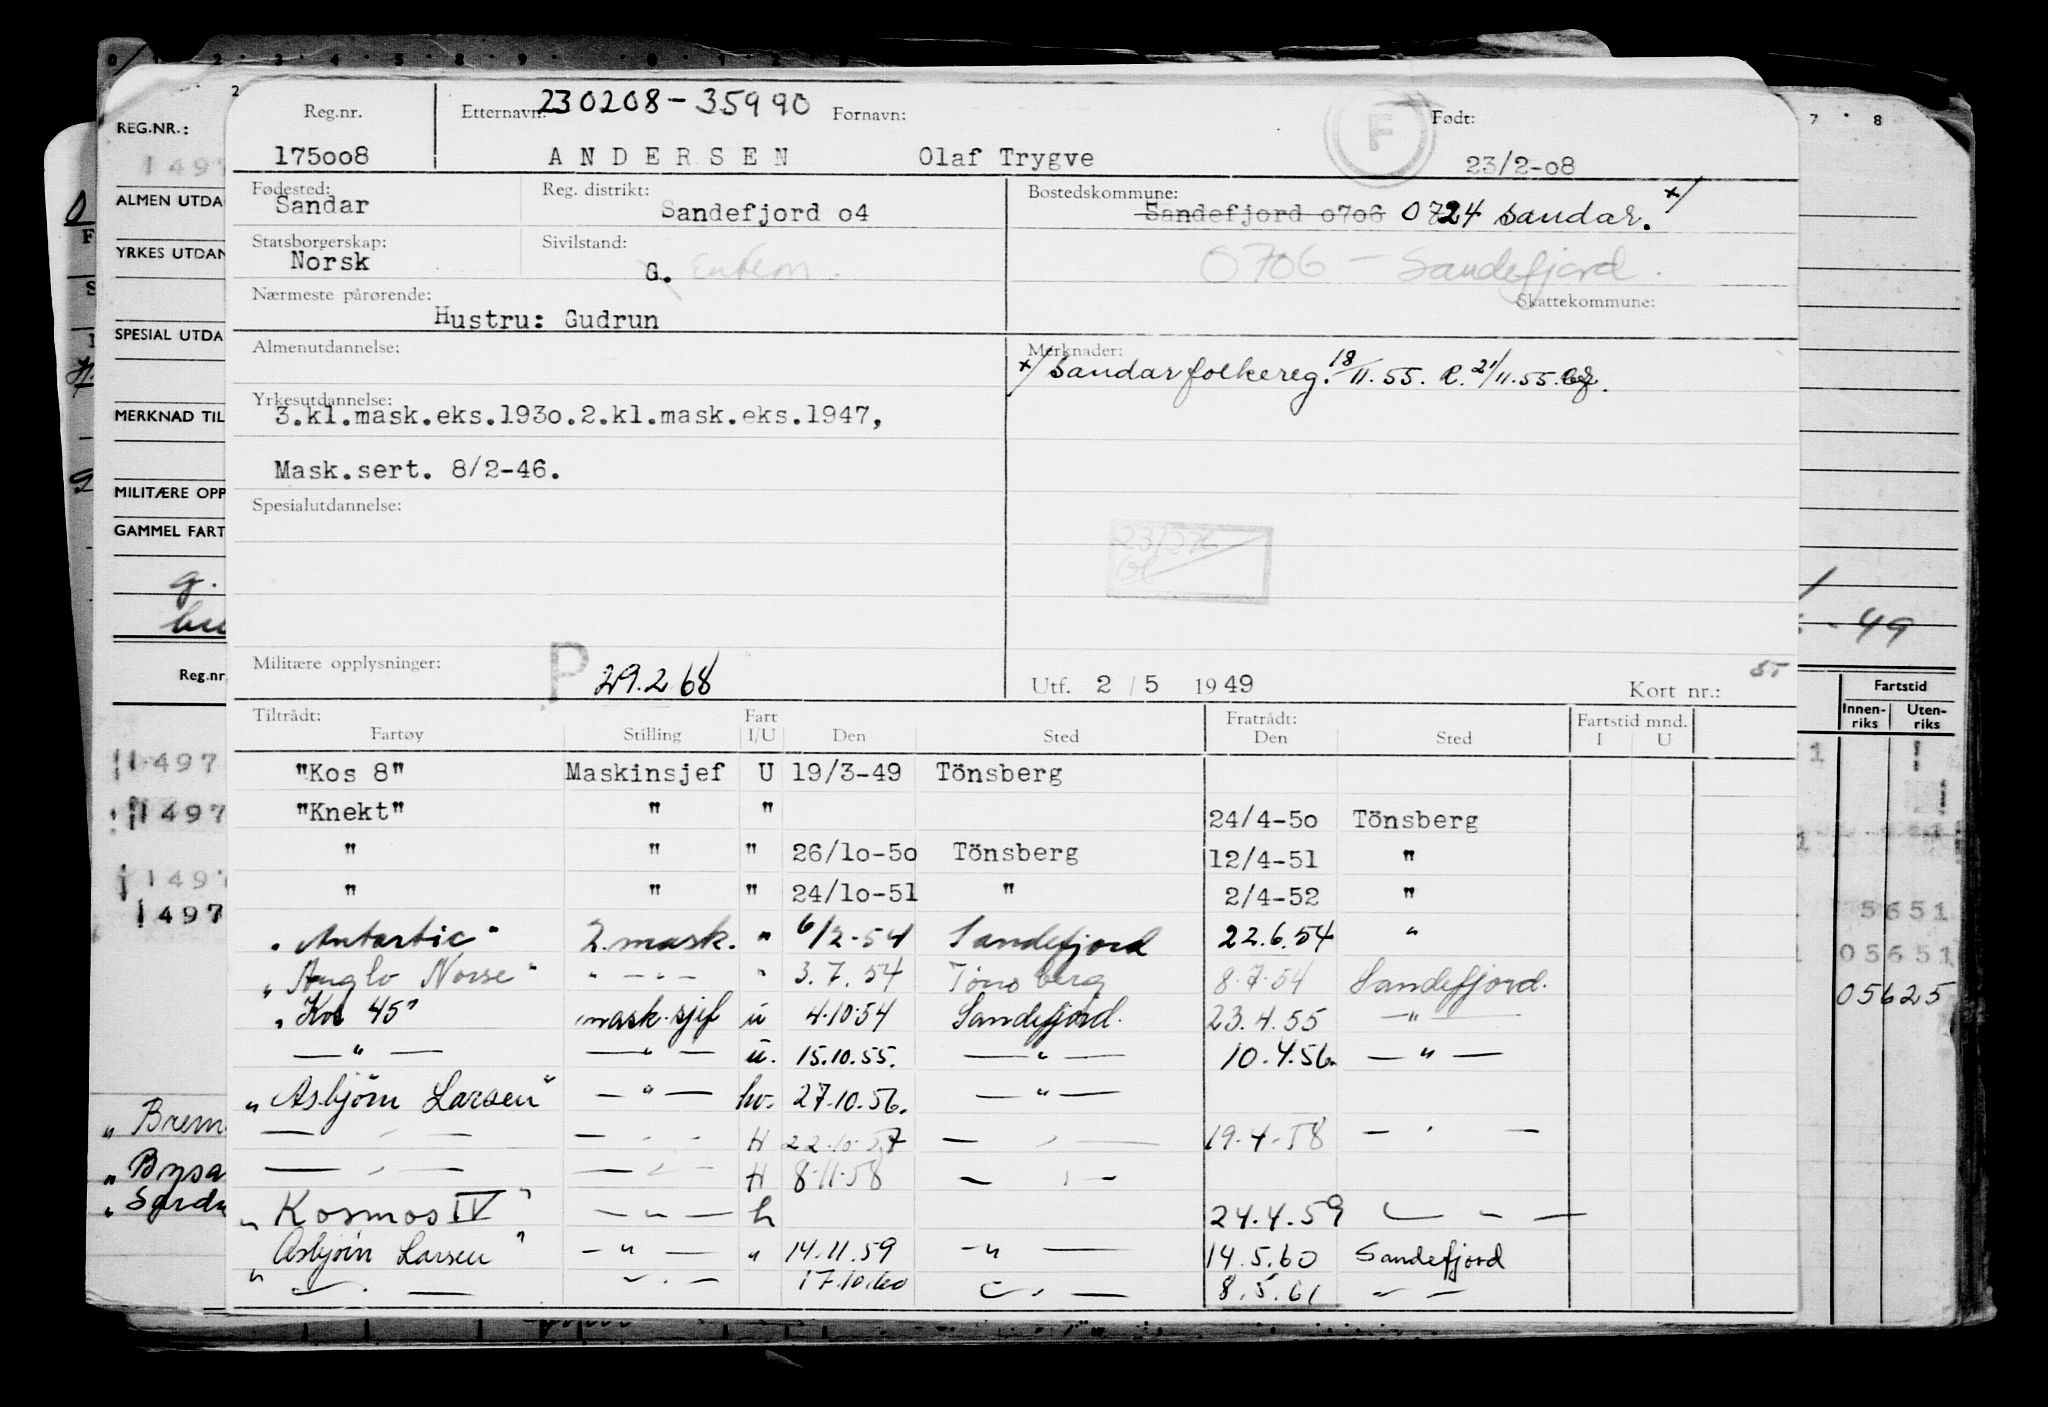 Reg.nr. Etternavn: 230208-35990 Fornavn: F Født:
175008 ANDERSEN Olaf Trygve 23/2-08
Fødested: Reg. distrikt: Bostedskommune:
Sandar Sandefjord 04 Sandefjord 0706 0724 Sandar. x/
Statsborgerskap: Sivilstand:
Norsk G. Enkem. 0706 - Sandefjord.
Nærmeste pårørende: Skattekommune:
Hustru: Gudrun
Almenutdannelse: Merknader:
x/ Sandar folkereg. 18/11.55. R. 21/11.55.
Yrkesutdannelse:
3.kl.mask.eks.1930.2.kl.mask.eks.1947,
Mask.sert. 8/2-46.
Spesialutdannelse:
Militære opplysninger: P 29.2.68 Utf. 2 / 5 1949 Kort nr.:
Tiltrådt: Fart Fratrådt: Fartstid mnd.
Fartøy Stilling I/U Den Sted Den Sted I U
"Kos 8" Maskinsjef U 19/3-49 Tönsberg
"Knekt" " " 24/4-50 Tönsberg
" " " 26/10-50 Tönsberg 12/4-51 "
" " " 24/10-51 " 2/4-52 "
"Antartic" 2. mask. " 6/2-54 Sandefjord 22.6.54 "
"Anglo Norse" " - " - " 3.7.54 Tönsberg 8.7.54 Sandefjord.
"Kos 45" mask.sjef u 4.10.54 Sandefjord. 23.4.55 - " -
- " - - " - u. 15.10.55. - " - 10.4.56. - " -
"Asbjörn Larsen" - " - hv. 27.10.56. - " -
- " - - " - H 22.10.57 - " - 19.4-58 - " -
- " - - " - H 8.11.58 - " -
"Kosmos IV" - " - h 24.4.59 - " -
"Asbjörn Larsen" - " - " 14.11.59 - " - 14.5.60 Sandefjord
" - " - - " - 17.10.60 - " - 8.5.61 - " -
REG.NR.:
1497
ALMEN UTDA
YRKES UTDAN
SPESIAL UTDA
MERKNAD TIL
MILITÆRE OPP
GAMMEL FART
Reg.nr
1497
1497
1497
1497
"Brem
"Bysa
7 8
- 49
Fartstid
Innen-riks Uten-riks
1
5651
05651
05625